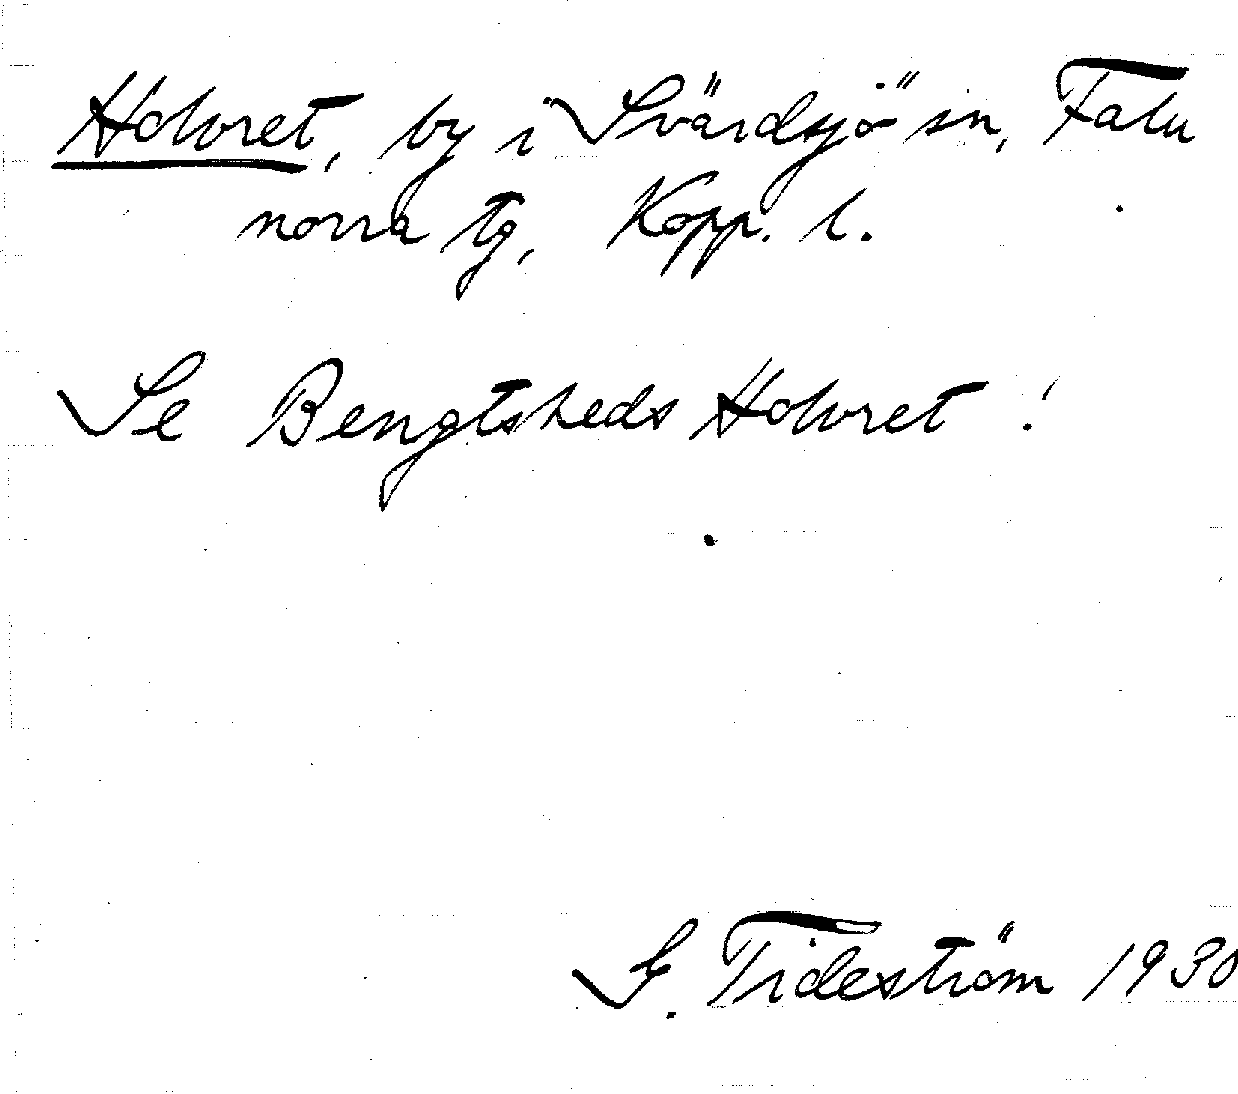 Holvret, by i Svärdsjö sn, Falu
norra tg, Kopp. l.
Se Bengtsheds Holvret!
G. Tideström 1930